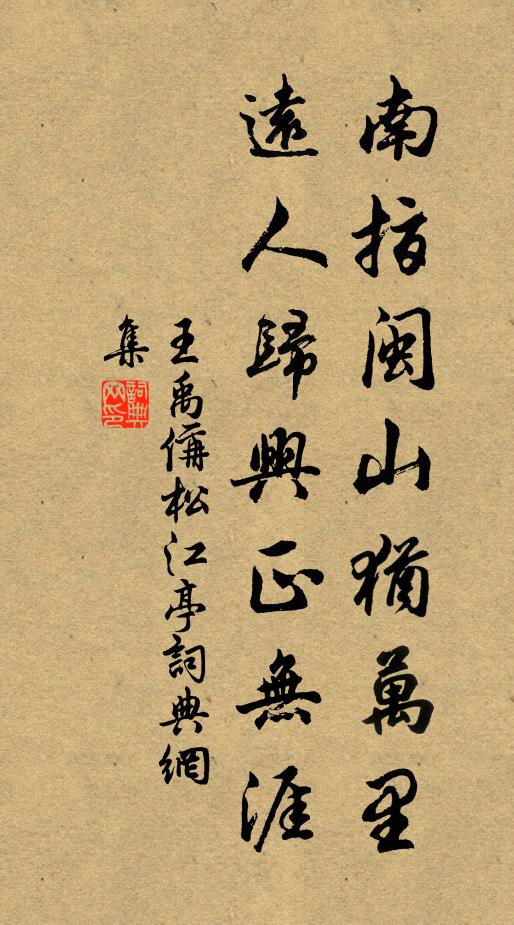 南指閩山猶萬里
遠人歸興正無涯
王禹偁松江亭詞典網
集
詞典
网印